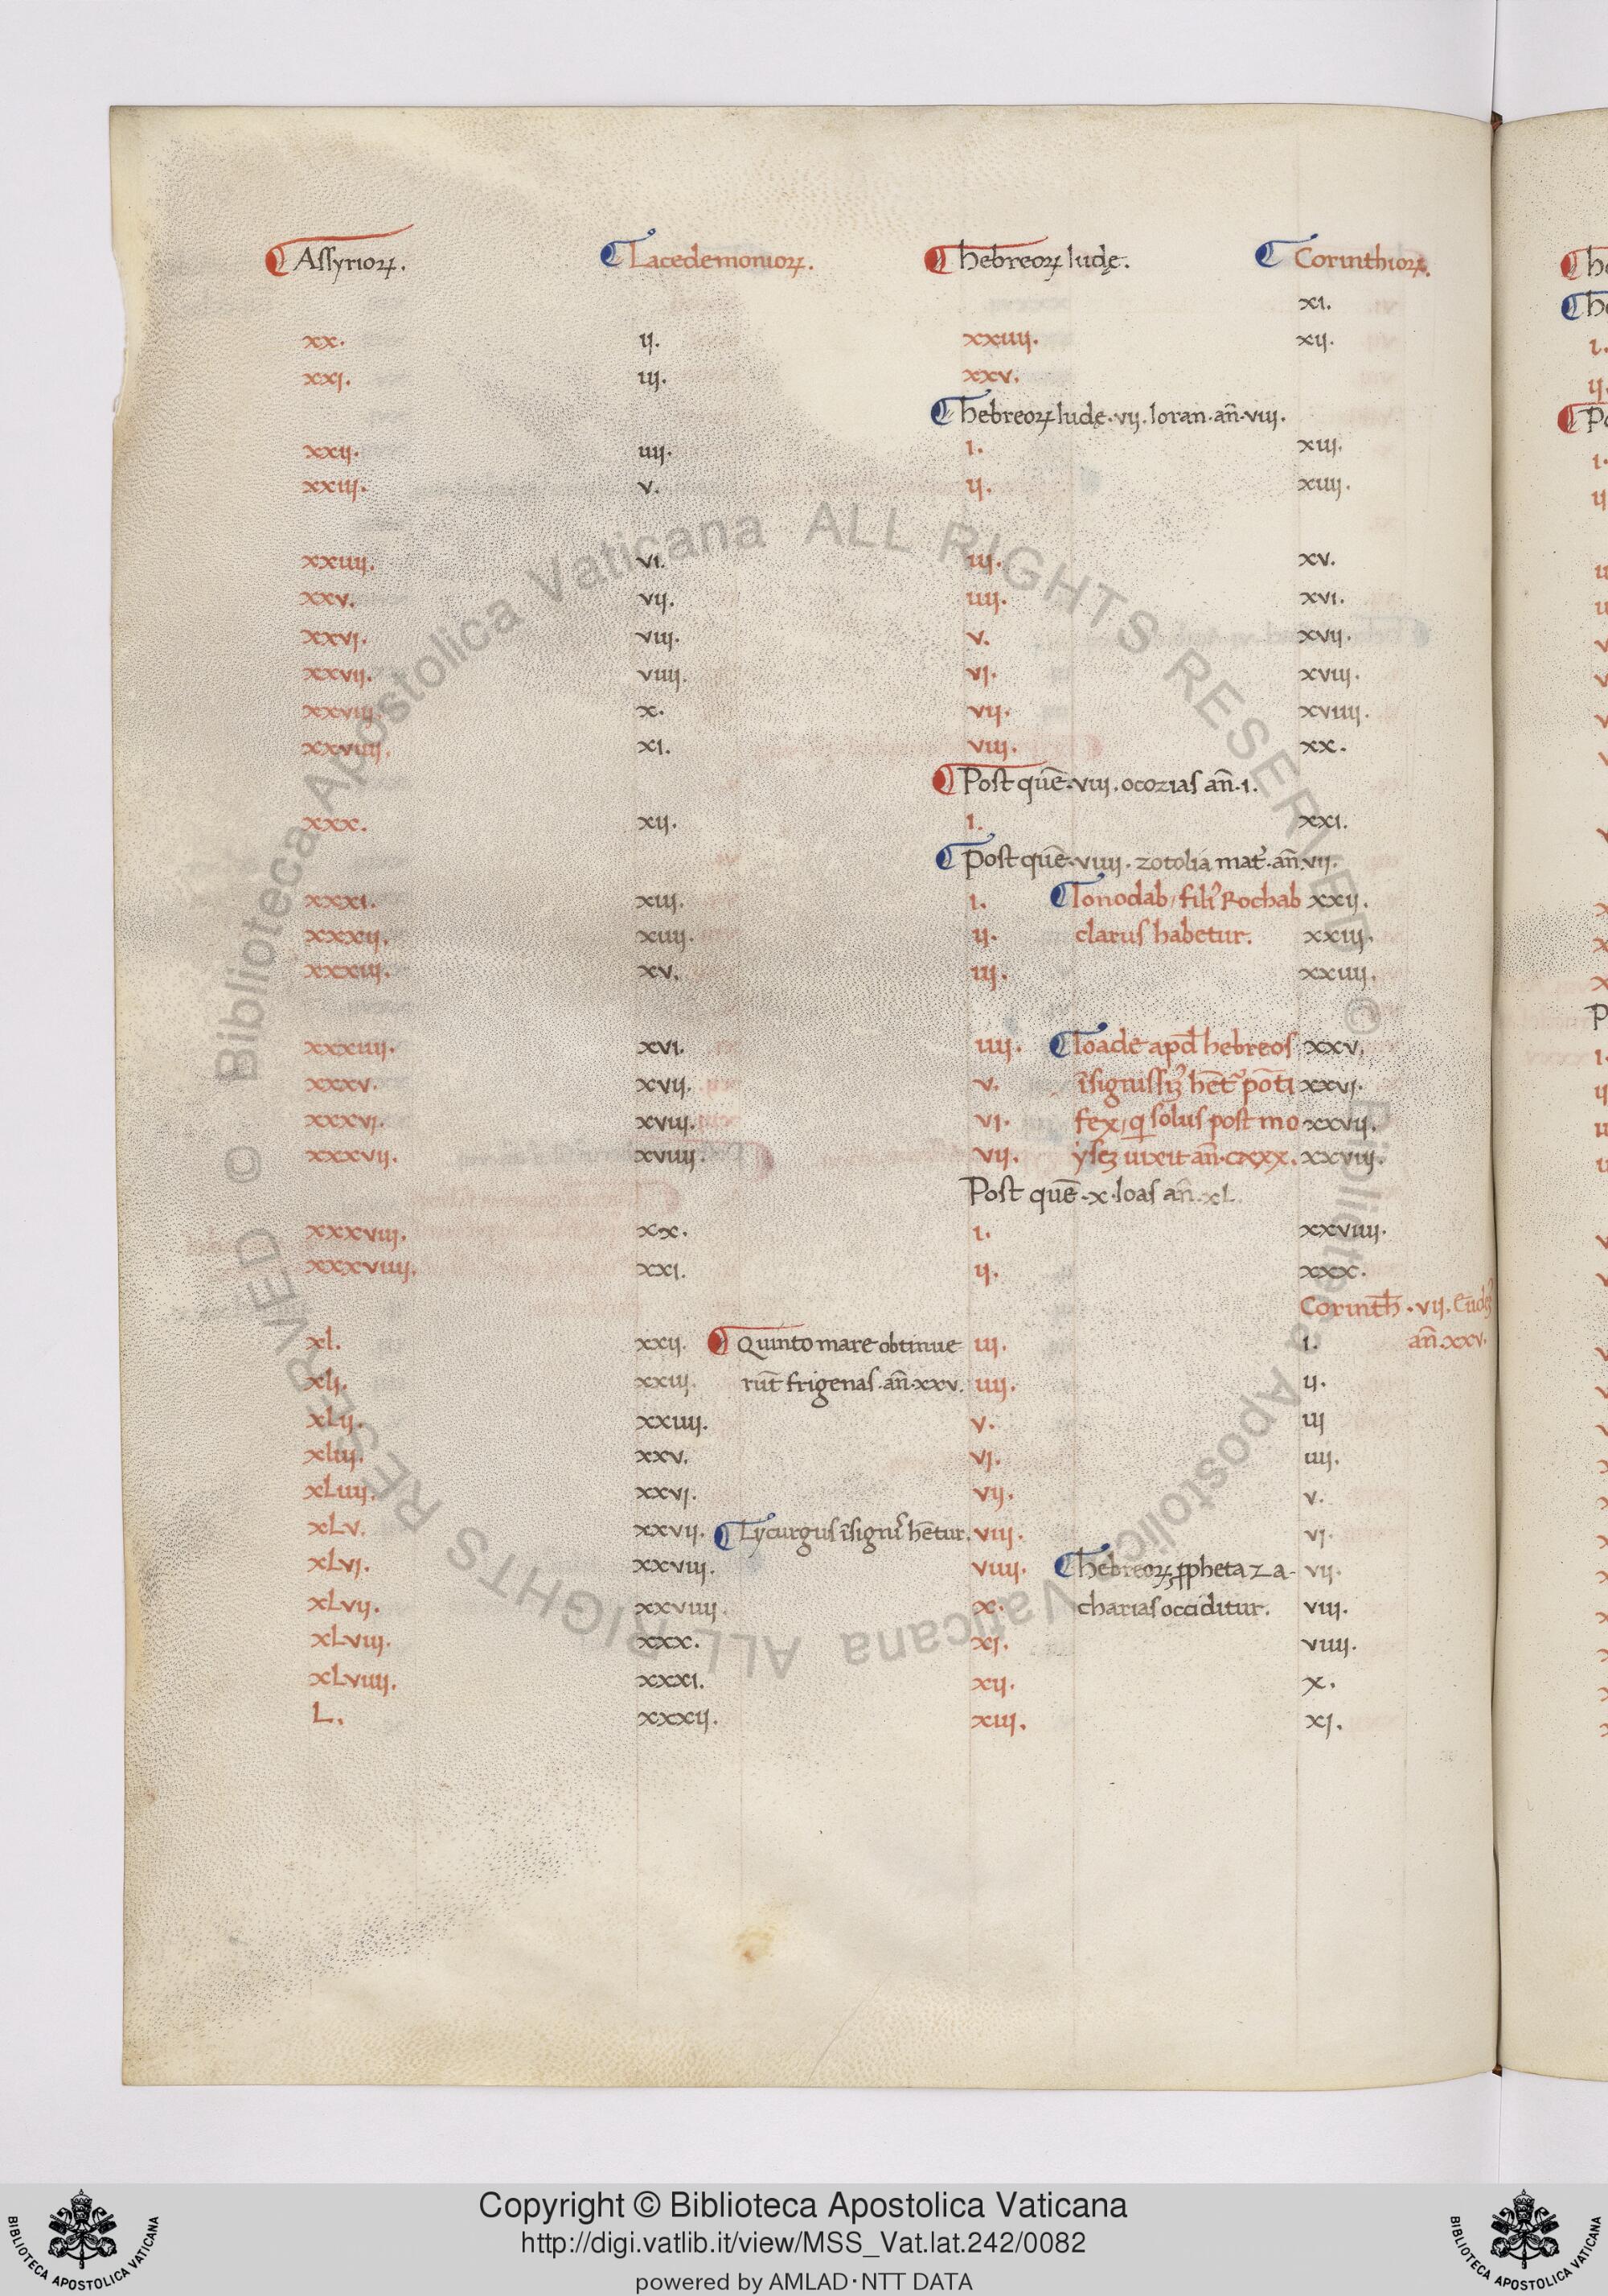 Assyrioꝝ. Lacedemonioꝝ. hebreoꝝ Iudę. Corinthioꝝ.
xi.
xx. ij. xxiiij. xij.
xxj. iij. xxv.
hebreoꝝ Iudę. vij. Ioran. an̄. viij.
xxij. iiij. i. xiij.
xxiij. v. ij. xiiij.
xxiiij. vi. iij. xv.
xxv. vij. iiij. xvi.
xxvj. viij. v. xvij.
xxvij. viiij. vj. xviij.
xxviij. x. vij. xviiij.
xxviiij. xi. viij. xx.
Post quē. viij. ocozias an̄. i.
xxx. xij. i. xxi.
Post quē. viiij. zotolia mat̓. an̄. vij.
xxxi. xiij. i. Ionodab / fili᷒ Rochab xxij.
xxxij. xiiij. ij. clarus habetur. xxiij.
xxxiij. xv. iij. xxiiij.
xxxiiij. xvi. iiij. Ioade apd̄ hebreos xxv.
xxxv. xvij. v. īsignissiꝫ hēt᷑ pōti xxvj.
xxxvj. xviij. vj. fex / q̣ solus post mo xxvij.
xxxvij. xviiij. vij. yseꝫ uixit an̄. cxxx. xxviij.
Post quē. x. Ioas an̄. xL.
xxxviij. xx. i. xxviiij.
xxxviiij. xxi. ij. xxx.
Corinth̄. vij.
xl. xxij. Quinto mare obtinue iij. i. an̄. xxv.
xlj. xxiij. rūt frigenas. an̄. xxv. iiij. ij.
xLij. xxiiij. v. iij
xliij. xxv. vj. iiij.
xLiiij. xxvj. vij. v.
xLv. xxvij. Lycurgus īsigni᷒ hētur. viij. vj.
xLvj. xxviij. viiij. hebreoꝝ ꝓpheta Za- vij.
xLvij. xxviiij. x. charias occiditur. viij.
xLviij. xxx. xj. viiij.
xLviiij. xxxi. xij. x.
L. xxxij. xiij. xj.
© Biblioteca Apostolica Vaticana ALL RIGHTS RESERVED
© Biblioteca Apostolica Vaticana ALL RIGHTS RESERVED
Copyright © Biblioteca Apostolica Vaticana
http://digi.vatlib.it/view/MSS_Vat.lat.242/0082
powered by AMLAD・NTT DATA
BIBLIOTECA APOSTOLICA VATICANA
BIBLIOTECA APOSTOLICA VATICANA